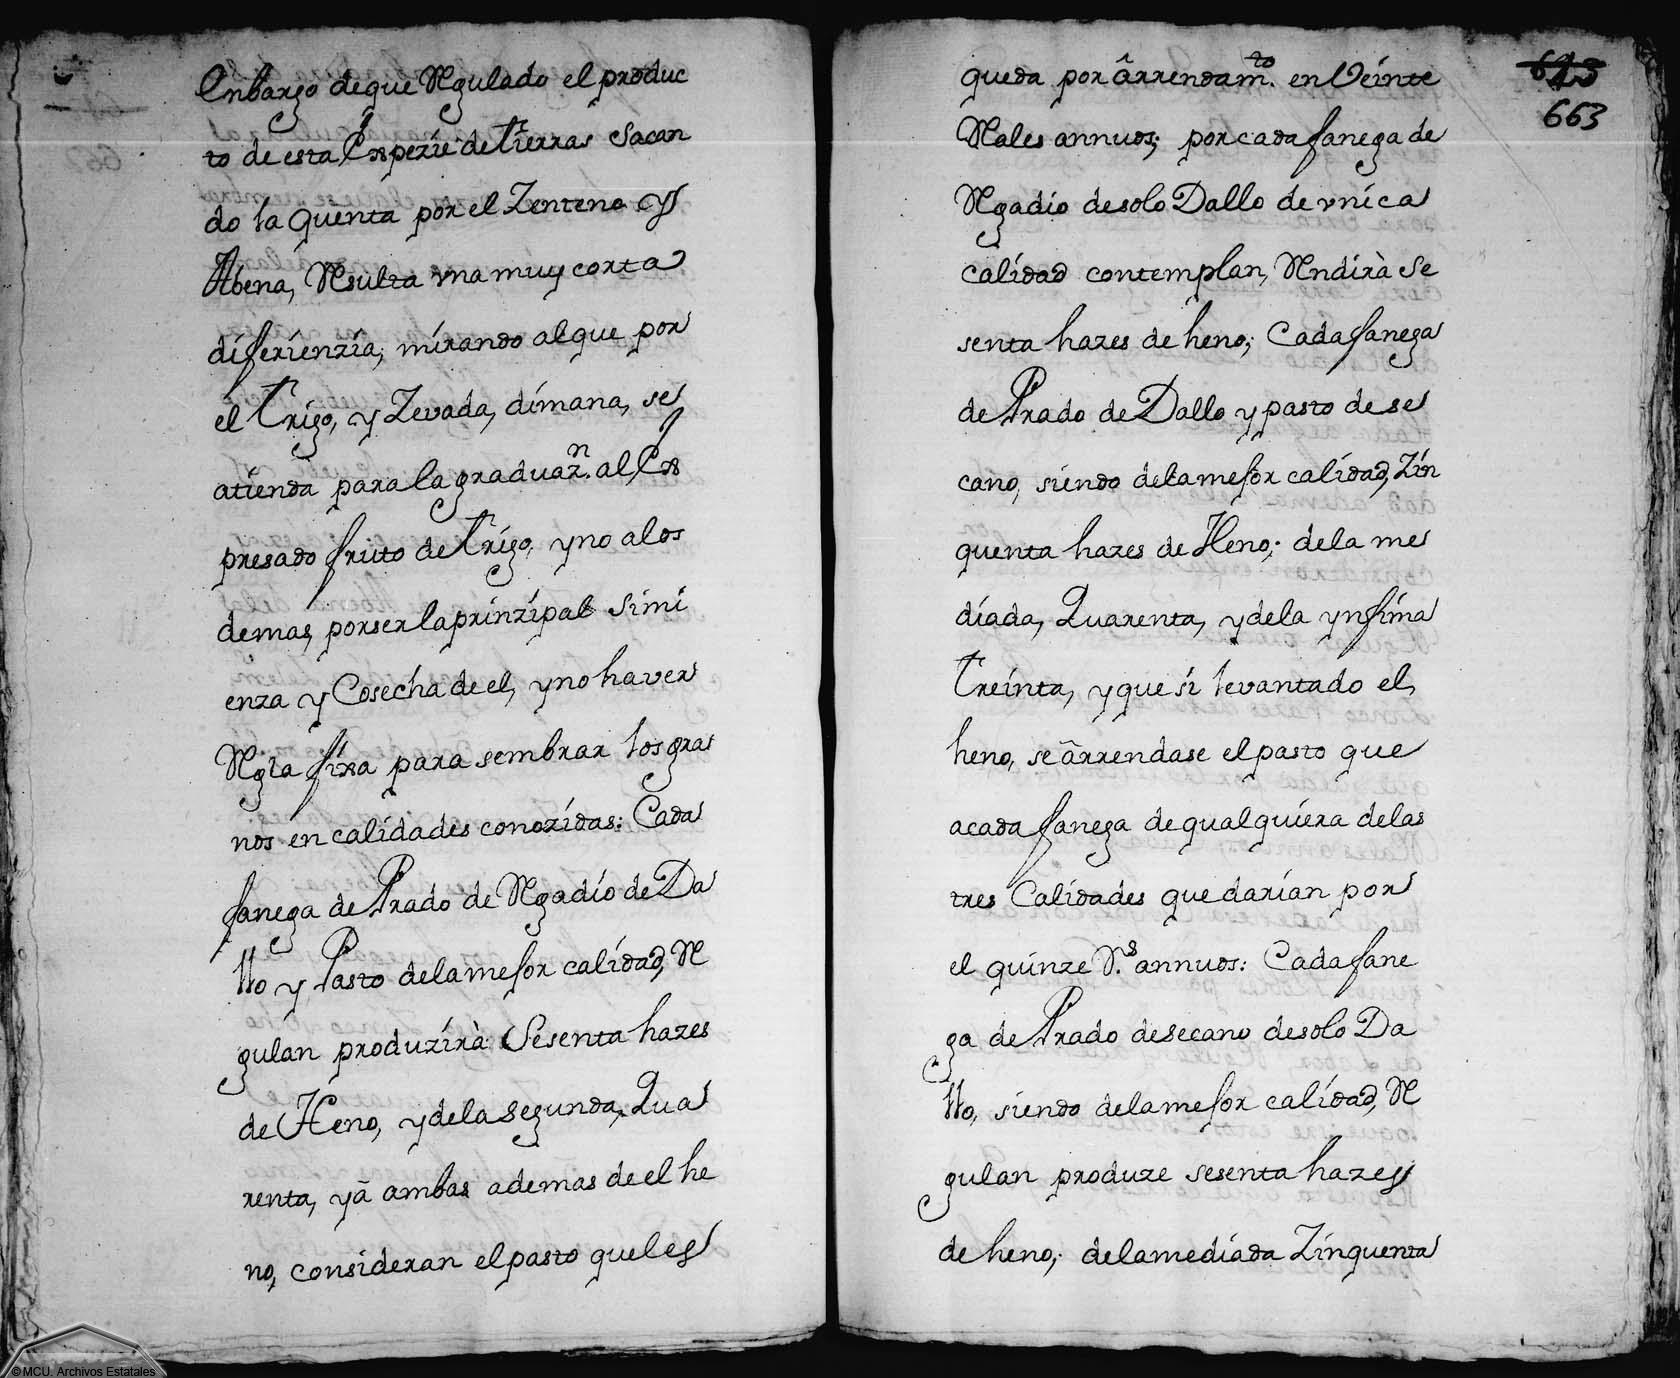 enbargo de que Regulado el produc
to de esta Experie de tierras Sacan
do la quenta por el Zenteno y
Abena, Resulta vna muy corta
diferienzia, mirando al que por
el trigo, y Zevada, dimana, se
atienda para la graduaz.n al Ex
presado fruto de trigo, y no a los
demas, por ser la prinzipal Simi
enza y Cosecha de el, y no haver
Regla fixa para sembrar los gra
nos en calidades conozidas: Cada
fanega de Prado de Regadio de Da
llo y Pasto de la mejor calidad, Re
gulan produzirà Sesenta hazes
de Heno, y de la Segunda, Qua
renta, y ã ambas ademas de el he
no, consideran el pasto que les
613
663
queda por ârrendam.to en Veinte
Reales annuos; por cada fanega de
Regadio de solo Dallo de vnica
calidad contemplan, Rendirà se
senta hazes de heno; Cada fanega
de Prado de Dallo y pasto de se
cano, siendo de la mejor calidad, Zin
quenta hazes de Heno; de la me
diada, Quarenta, y de la ynfima
treinta, y que si levantado el
heno, se ãrrendase el pasto que
a cada fanega de qualquiera de las
tres Calidades quedarian por
el quinze R.s annuos: Cada fane
ga de Prado de secano de solo Da
llo, siendo de la mejor calidad, Re
gulan produze sesenta hazes
de heno; de la mediada Zinquenta
©MCU. Archivos Estatales